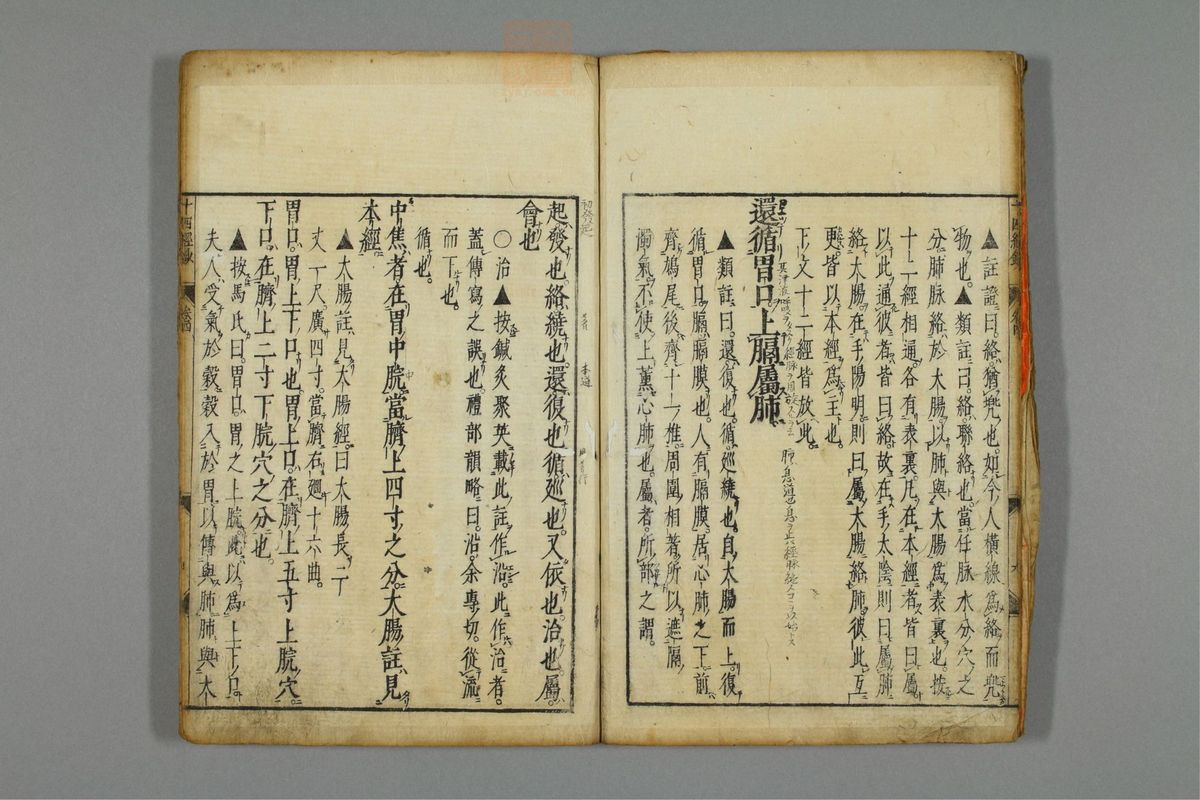 ▲註證曰絡猶兜也如今人橫線爲絡而兜
物也▲類註曰絡聯絡也當任脉水分穴之
分肺脉絡於大腸以肺與大腸爲表裏也按
十二經相通各有表裏凡在本經者皆曰屬
以此通彼者皆曰絡故在手太陰則曰屬肺
絡大腸在手陽明則曰屬大腸絡肺彼此互
更皆以本經爲主也
下文十二經皆放此
還循胃口上膈屬肺
▲類註曰還復也循巡繞也自大腸而上復
循胃口膈膈膜也人有膈膜居心肺之下前
齊鳩尾後齊十一椎周圍相著所以遮隔
濁氣不使上薰心肺也屬者所部之謂
起發也絡繞也還復也循巡也又依也沿也屬
會也
○沿▲按鍼灸聚英載此註作沿此作治者
蓋傳寫之誤也禮部韻略曰沿余專切從流
而下也
循也
中焦者在胃中脘當臍上四寸之分大腸註見
本經
▲大腸註見大腸經曰大腸長二
丈一尺廣四寸當臍右廻十六曲
胃口胃上下口也胃上口在臍上五寸上脘穴
下口在臍上二寸下脘穴之分也
▲按馬氏曰胃口胃之上脘此以爲上下口
夫人受氣於穀穀入於胃以傳與肺肺與大